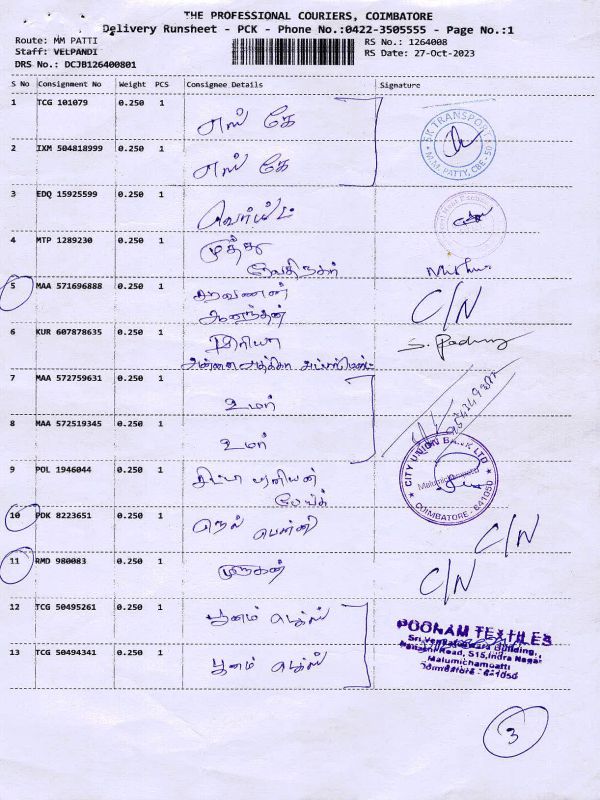 THE PROFESSIONAL COURIERS, COIMBATORE
Delivery Runsheet - PCK - Phone No.:0422-3505555 - Page No.:1
Route: MM PATTI
RS No.: 1264008
Staff: VELPANDI
RS Date: 27-Oct-2023
DRS No.: DCJB126400801
S No Consignment No Weight PCS Consignee Details Signature
1 TCG 101079 0.250 1 எஸ் கே
SK TRANSPORT
M.M. PATTY, CBE - 50
2 IXM 504818999 0.250 1 எஸ் கே
3 EDQ 15925599 0.250 1
4 MTP 1289230 0.250 1 முத்து
5 MAA 571696888 0.250 1 சரவணன் C/N
ஆனந்தன்
6 KUR 607878635 0.250 1 பிரியா S.
7 MAA 572759631 0.250 1 உமர்
8 MAA 572519345 0.250 1 உமர்
CITY UNION BANK LTD
Malumichampatti
COIMBATORE - 641050
9 POL 1946044 0.250 1
10 PDK 8223651 0.250 1 C/N
11 RMD 980083 0.250 1 முருகன் C/N
12 TCG 50495261 0.250 1 பூனம் டெக்ஸ்
POONAM TEXTILES
Sri Venkateswara Building,
Road, S15, Indra Nagar
13 TCG 50494341 0.250 1 பூனம் டெக்ஸ்
Malumichampatti
Coimbatore - 641050
3